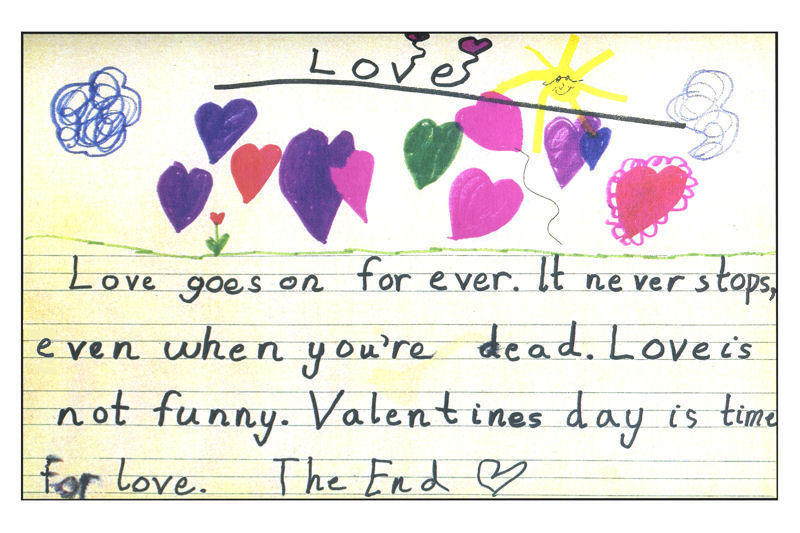 Love
Love goes on for ever. It never stops,
even when you're dead. Love is
not funny. Valentines day is time
for love. The End